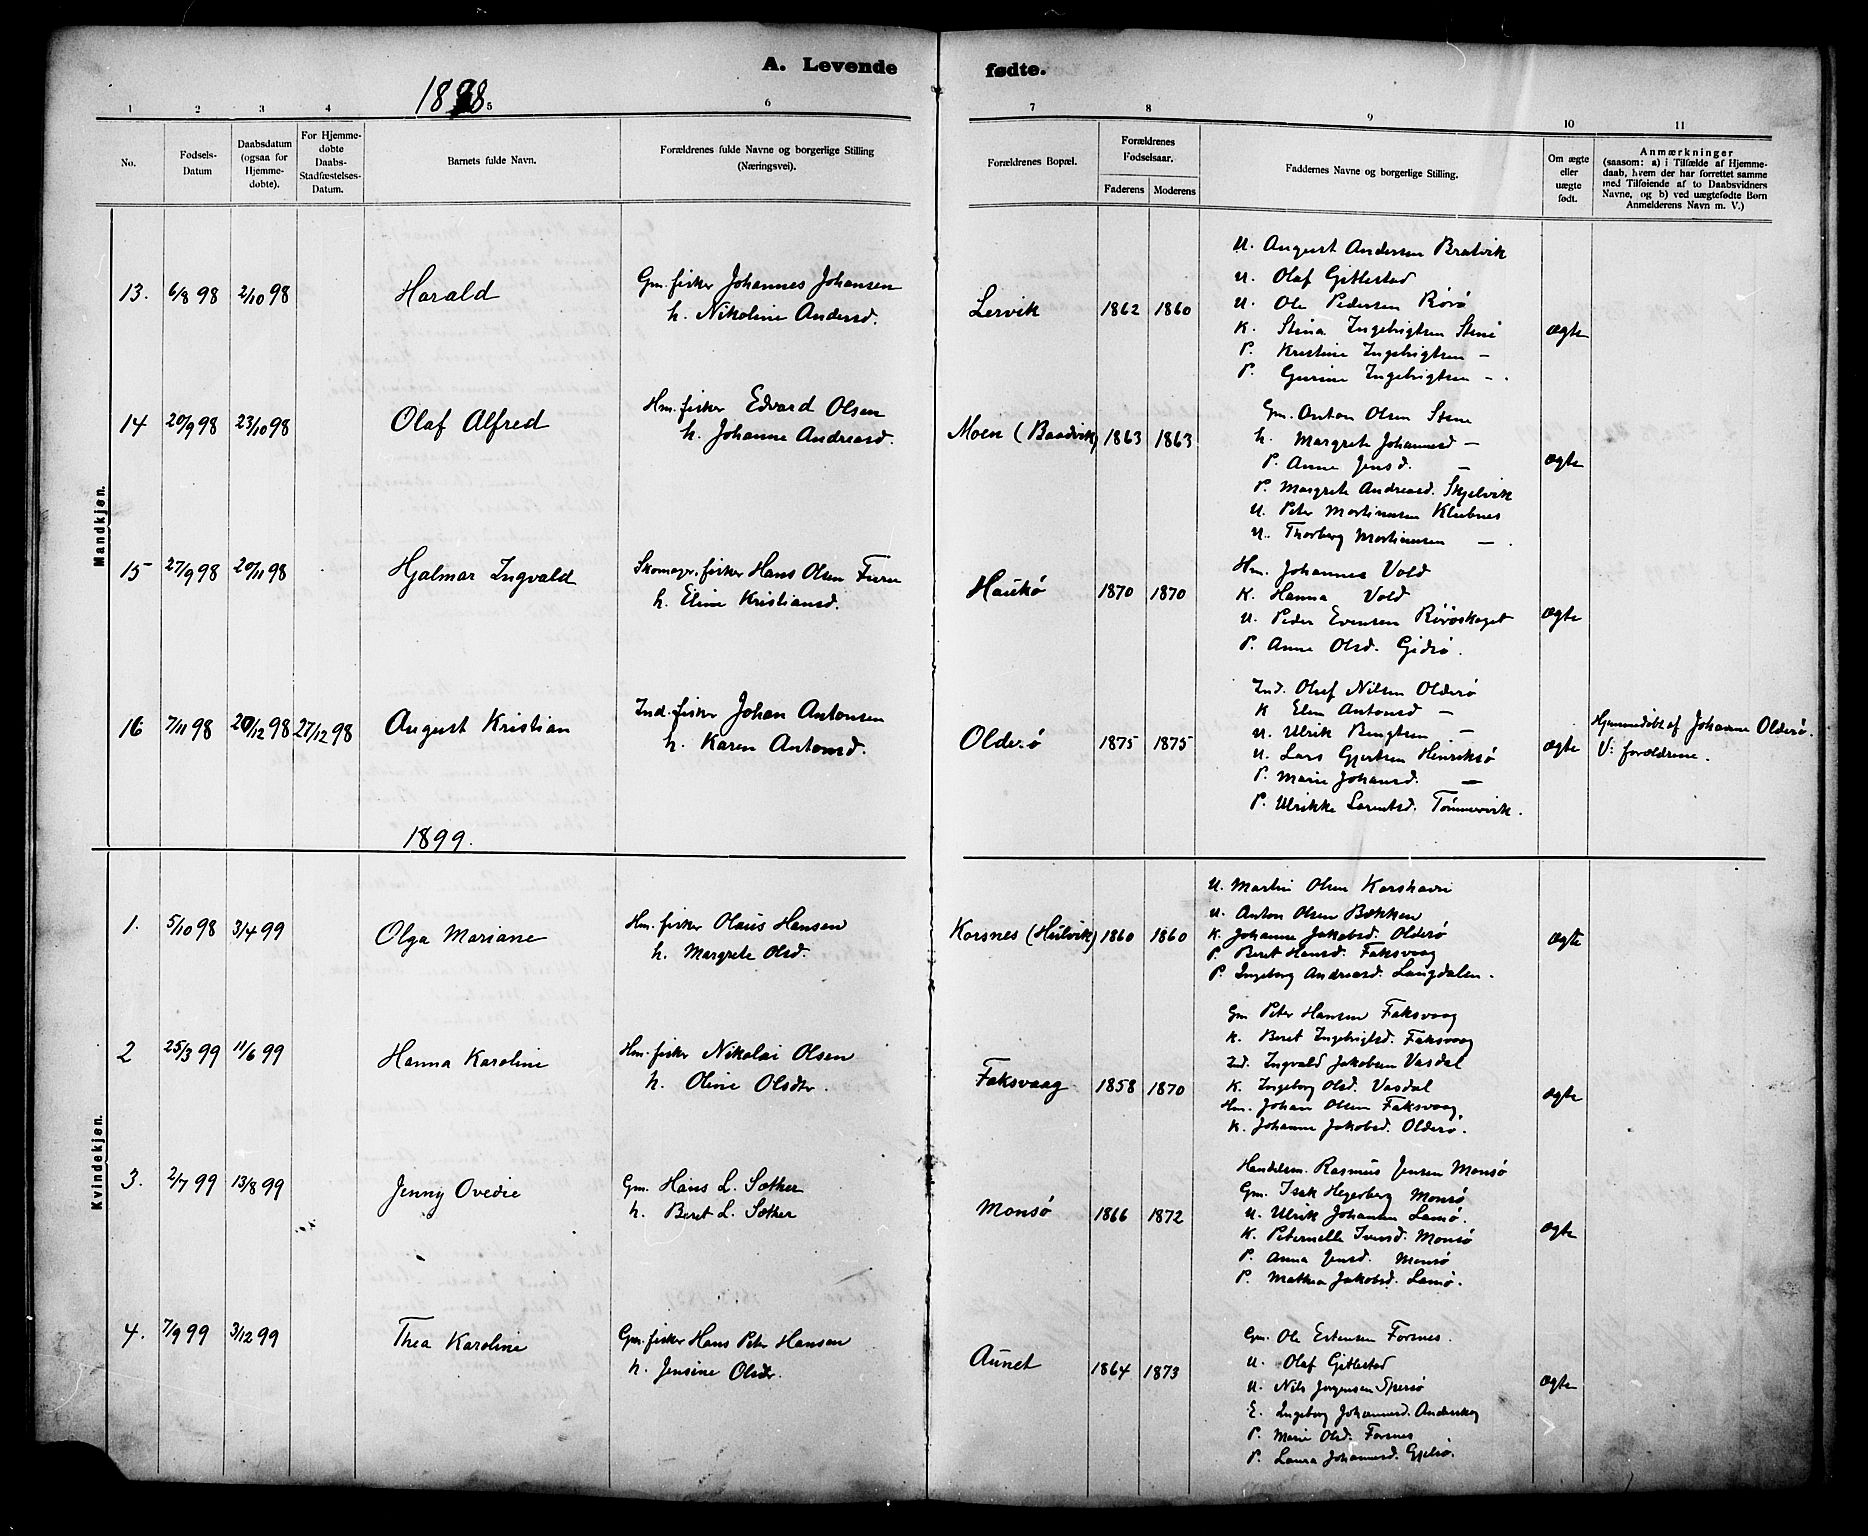 A. Levende fødte.
1898
1 2 3 4 5 6 7 8 9 10 11
No.
Fødsels-
Datum
Daabsdatum
(ogsaa for
Hjemme-
døbte).
For Hjemme-
døbte
Daabs-
Stadfæstelses-
Datum.
Barnets fulde Navn.
Forældrenes fulde Navne og borgerlige Stilling
(Næringsvei).
Forældrenes Bopæl.
Forældrenes
Fødselsaar.
Faderens Moderens
Faddernes Navne og borgerlige Stilling.
Om ægte
eller
uægte
født.
Anmærkninger
(saasom: a) i Tilfælde af Hjemme-
daab, hvem der har forrettet samme
med Tilføiende af to Daabsvidners
Navne, og b) ved uægtefødte Børn
Anmelderens Navn m. V.)
Mandkjøn.
13. 6/8 98 2/10 98
Harald
Gm. fisker Johannes Johansen
h. Nikoline Andersd.
Lervik 1862 1860
U. August Andersen Bratvik
U. Olaf Gittlestad
U. Ole Pedersen Rörö
K. Stina Ingebrigtsen Stene
P. Kristine Ingebrigtsen —
P. Gurine Ingebrigtsen — .
Ægte
14 20/9 98 23/10 98
Olaf Alfred
Hm. fisker Edvard Olsen
h. Johanne Andreasd.
Moen (Baadvik) 1863 1863
Gm. Anton Olsen Stene
h. Margrete Johannesd —
P. Anne Jensd. —
P. Margrete Andreasd. Skjelvik
U. Peter Martinusen Klubnes
U. Thorberg Martinusen — .
Ægte
15 27/9 98 20/11 98
Hjalmar Ingvald
Skomager. fisker Hans Olsen Furu
h. Eline Kristiansd.
Haukö 1870 1870
Hm. Johannes Vold
K. Hanna Vold
U. Peder Evensen Röröskaget
P. Anne Olsd. Gjdsö.
Ægte
16 7/11 98 20/12 98 27/12 98
August Kristian
Ind. fisker Johan Antonsen
h. Karen Antonsd.
Olderö 1875 1875
Ind. Oluf Nilsen Olderö
K Elen Antonsd —
U. Ulrik Bengtsen —
U. Lars Gjertsen Henriksö
P. Marie Johansd. —
P. Ulrikke Larentsd. Tömmervik.
Ægte
Hjemmedöbt af Johanne Olderö.
V: forældrene.
1899.
Kvindekjøn.
1. 5/10 98 3/4 99
Olga Mariane
Hm. fisker Olaus Hansen
h. Margrete Olsd.
Korsnes (Hulvik) 1860 1860
U. Martin Olsen Korshavn
U. Anton Olsen Bækken
K. Johanna Jakobsd. Olderö
P. Beret Hansd. Faksvaag
P. Ingeborg Andreasd. Langdalen.
Ægte
2 25/3 99 11/6 99
Hanna Karoline
Hm. fisker Nikolai Olsen
h. Oline Olsdtr.
Faksvaag 1858 1870
Gm Peter Hansen Faksvaag
K. Beret Ingebrigtsd. Faksvaag
Ind. Ingvald Jakobsen Vasdal
K. Ingeborg Olsd. Vasdal
Hm. Johan Olsen Faksvaag.
K. Johanne Jakobsd. Olderö.
Ægte
3. 2/7 99 13/8 99
Jenny Ovedie
Gm. Hans L. Sæther
h. Beret L. Sæther
Monsö 1866 1872
Handelsm. Rasmus Jensen Monsö
Gm. Isak Hegerberg Monsö
U. Ulrik Johansen Lamö.
K. Peternelle Iversd. Monsö
P. Anna Jensd. Monsö
P. Mathea Jakobsd. Lamö.
Ægte
4. 7/9 99 3/12 99
Thea Karoline
Gm. fisker Hans Peter Hansen
h. Jensine Olsdr.
Aunet 1864 1873
Gm. Ole Estensen Forsnes.
U. Olaf Gittlestad
U. Nils Jørgensen Spersö
E. Ingeborg Johannesd. Anderskog
P. Marie Olsd. Forsnes
P. Laura Johannesd. Gjelsö.
Ægte